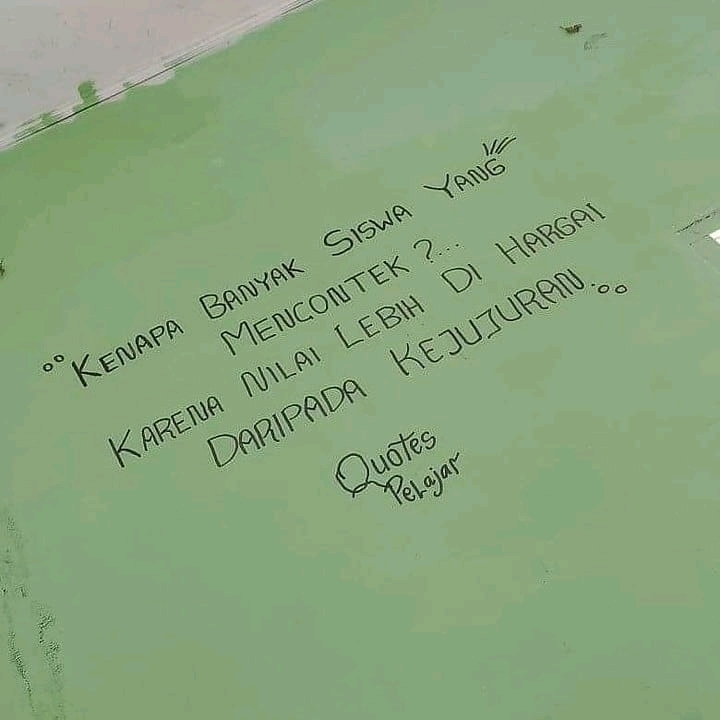 "KENAPA BANYAK SISWA YANG
MENCONTEK ?...
KARENA NILAI LEBIH DI HARGAI
DARIPADA KEJUJURAN."
Quotes
Pelajar